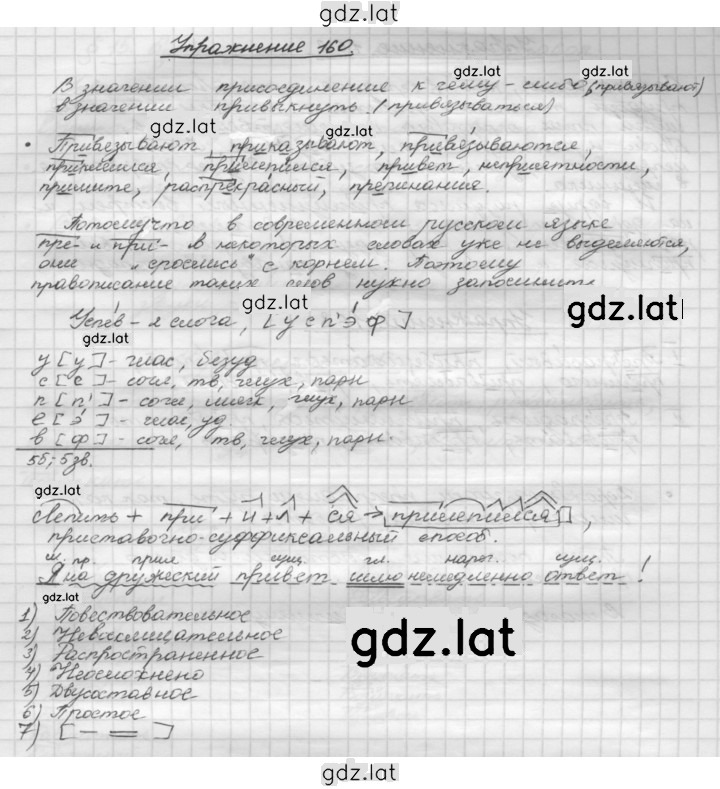 gdz.lat
Упражнение 160.
gdz.lat gdz.lat
В значении присоединение к чему-либо (привязывают)
в значении привыкнуть. (привязываться)
gdz.lat
• Привязывают, приказывают, привязываются,
притаился, прилепился, привет, неприятности,
примите, распрекрасный, пререкания.
gdz.lat
Потомучто в современном русском языке
пре- и при- в некоторых словах уже не выделяются,
они "срослись" с корнем. Поэтому
правописание таких слов нужно запомнить
gdz.lat gdz.lat
Успéв - 2 слога, [у с п' э́ ф]
gdz.lat
у [у] - глас, безуд
с [с] - согл, тв, глух, парн
п [п'] - согл, мягк, глух, парн
е [э́] - глас, уд.
в [ф] - согл, тв, глух, парн.
5б; 5зв.
gdz.lat gdz.lat
Слепить + при + и + л + ся → прилепился,
приставочно-суффиксальный способ.
м. пр. прил сущ. гл. нареч. сущ.
Я на дружеский привет шлю немедленно ответ!
gdz.lat
1) Повествовательное
2) Невосклицательное
3) Распространенное
4) Неосложнено
5) Двусоставное
6) Простое
7) [— =]
gdz.lat
gdz.lat